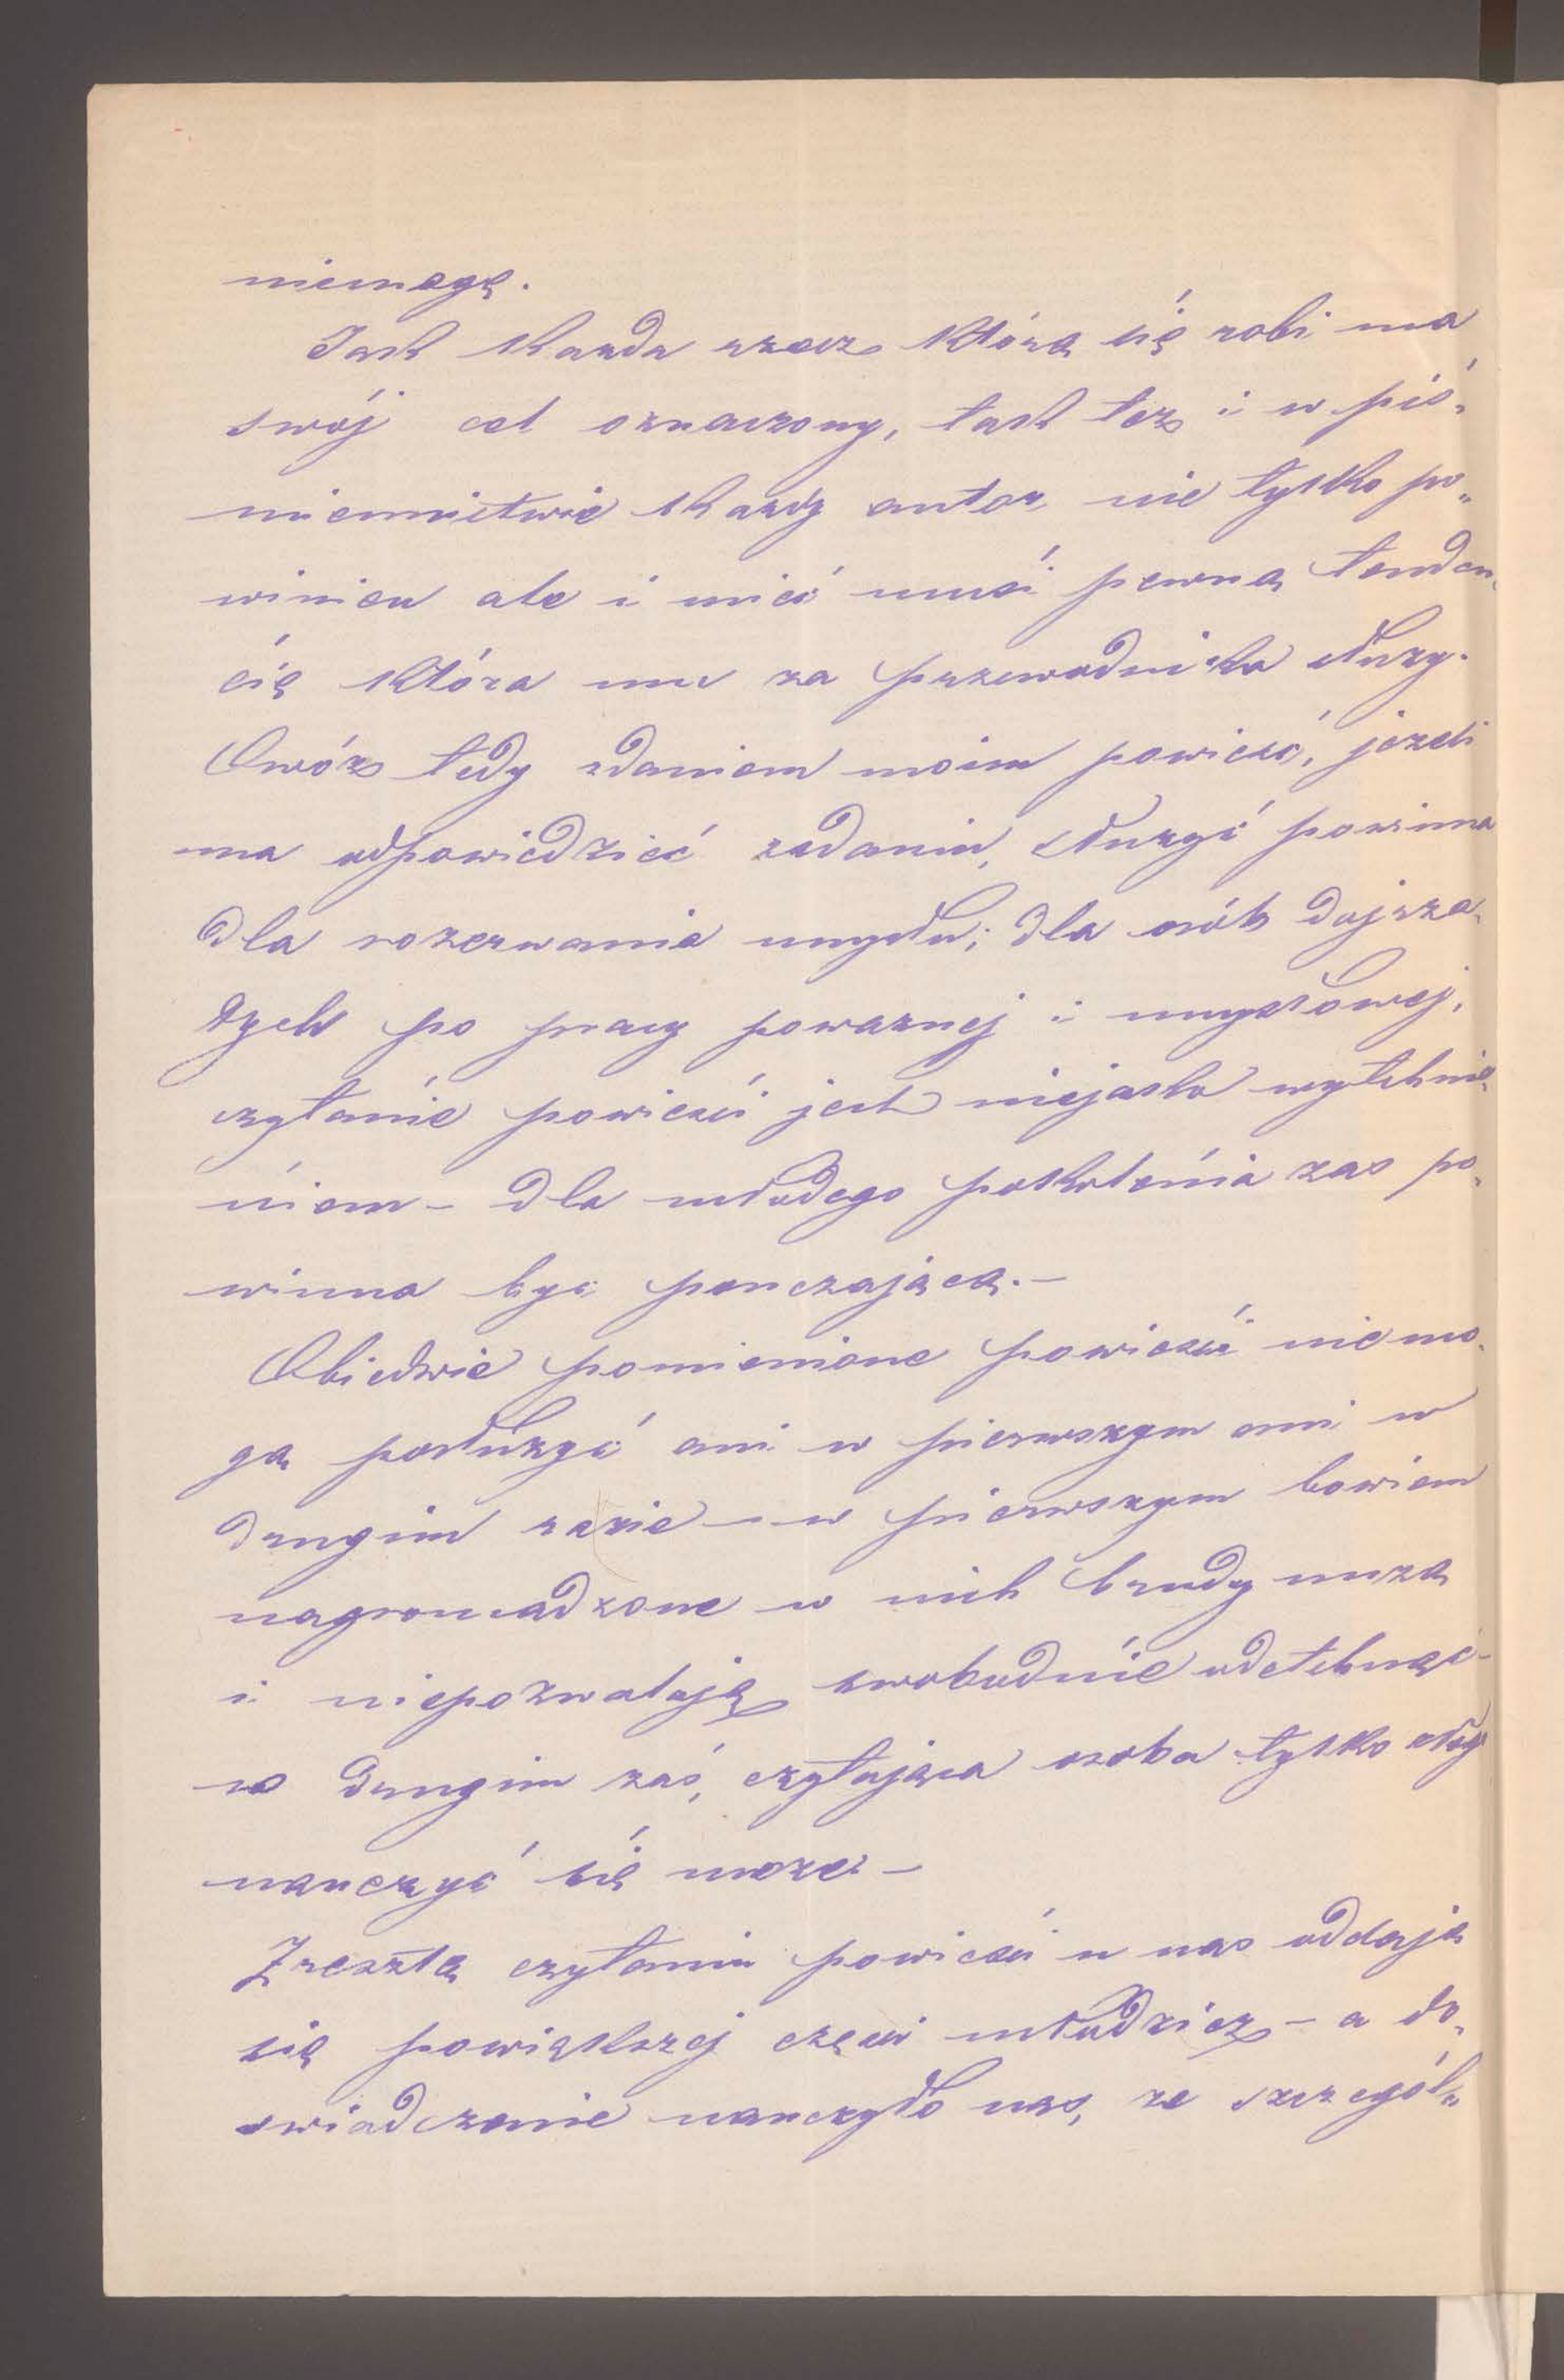 niemogę.
Jak każda rzecz którą się robi ma
swój cel oznaczony, tak też i w piś„
miennictwie każdy autor, nie tylko po„
winien ale i mieć musi pewną tenden„
cię która mu za przewodnika służy.
Owóż tedy zdaniem moim powieść, jeżeli
ma odpowiedzieć zadaniu, służyć powinna
dla rozerwania umysłu; dla osób dojrza„
łych po pracy poważnej i umysłowej,
czytanie powieści jest niejako wytchnie„
niem – dla młodego pokolenia zaś po„
winna być pouczającą. –
Obiedwie pomienione powieści niemo„
gą posłużyć ani w pierwszym ani w
drugim razie – w pierwszym bowiem
nagromadzone w nich brudy nużą
i niepozwalają swobodnie odetchnąć –
w drugim zaś, czytająca osoba tylko złego
nauczyć się może –
Zresztą czytaniu powieści u nas oddaje
się powiększej części młodzież – a do„
swiadczenie nauczyło nas, że szczegól„